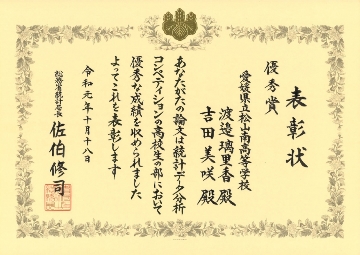 表彰状
優秀賞
愛媛県立松山南高等学校
渡邉璃里香殿
吉田美咲殿
あなたがたの論文は統計データ分析
コンペティションの高校生の部において
優秀な成績を収められました
よってこれを表彰します
令和元年十月十八日
総務省統計局長
佐伯修司